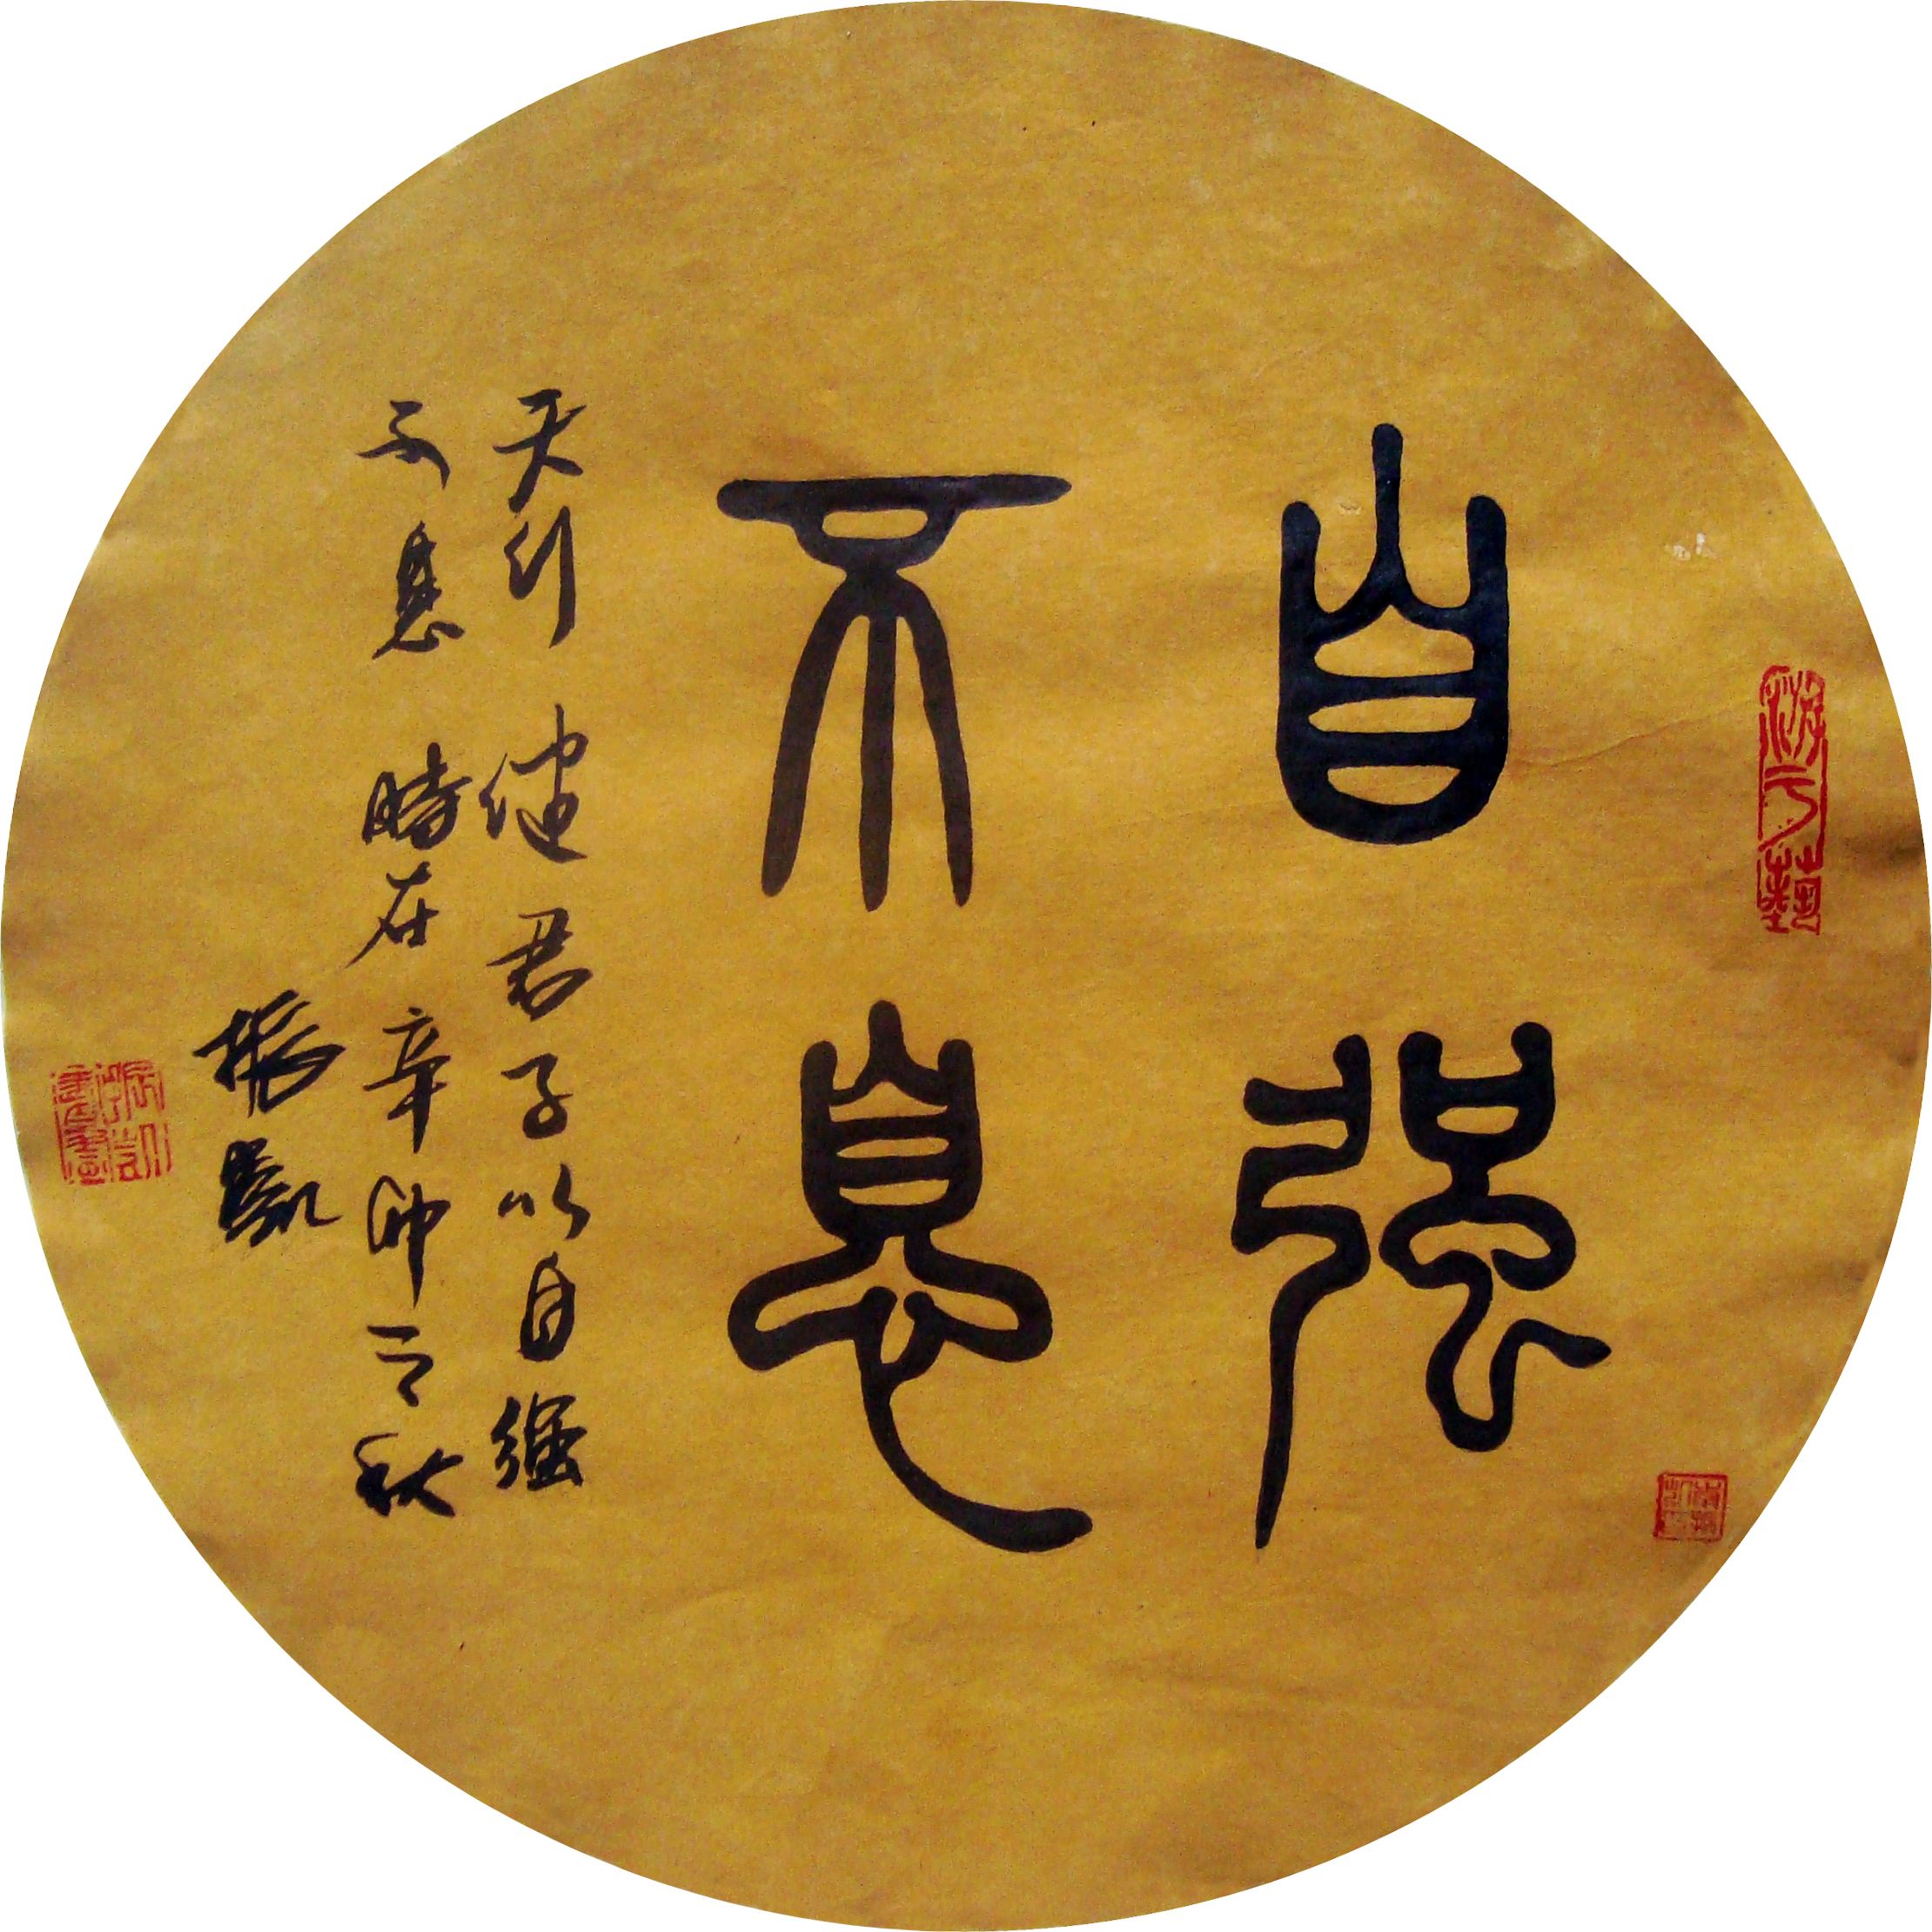 自强
不息
天行健君子以自强
不息時在辛卯之秋
振凱
游于藝